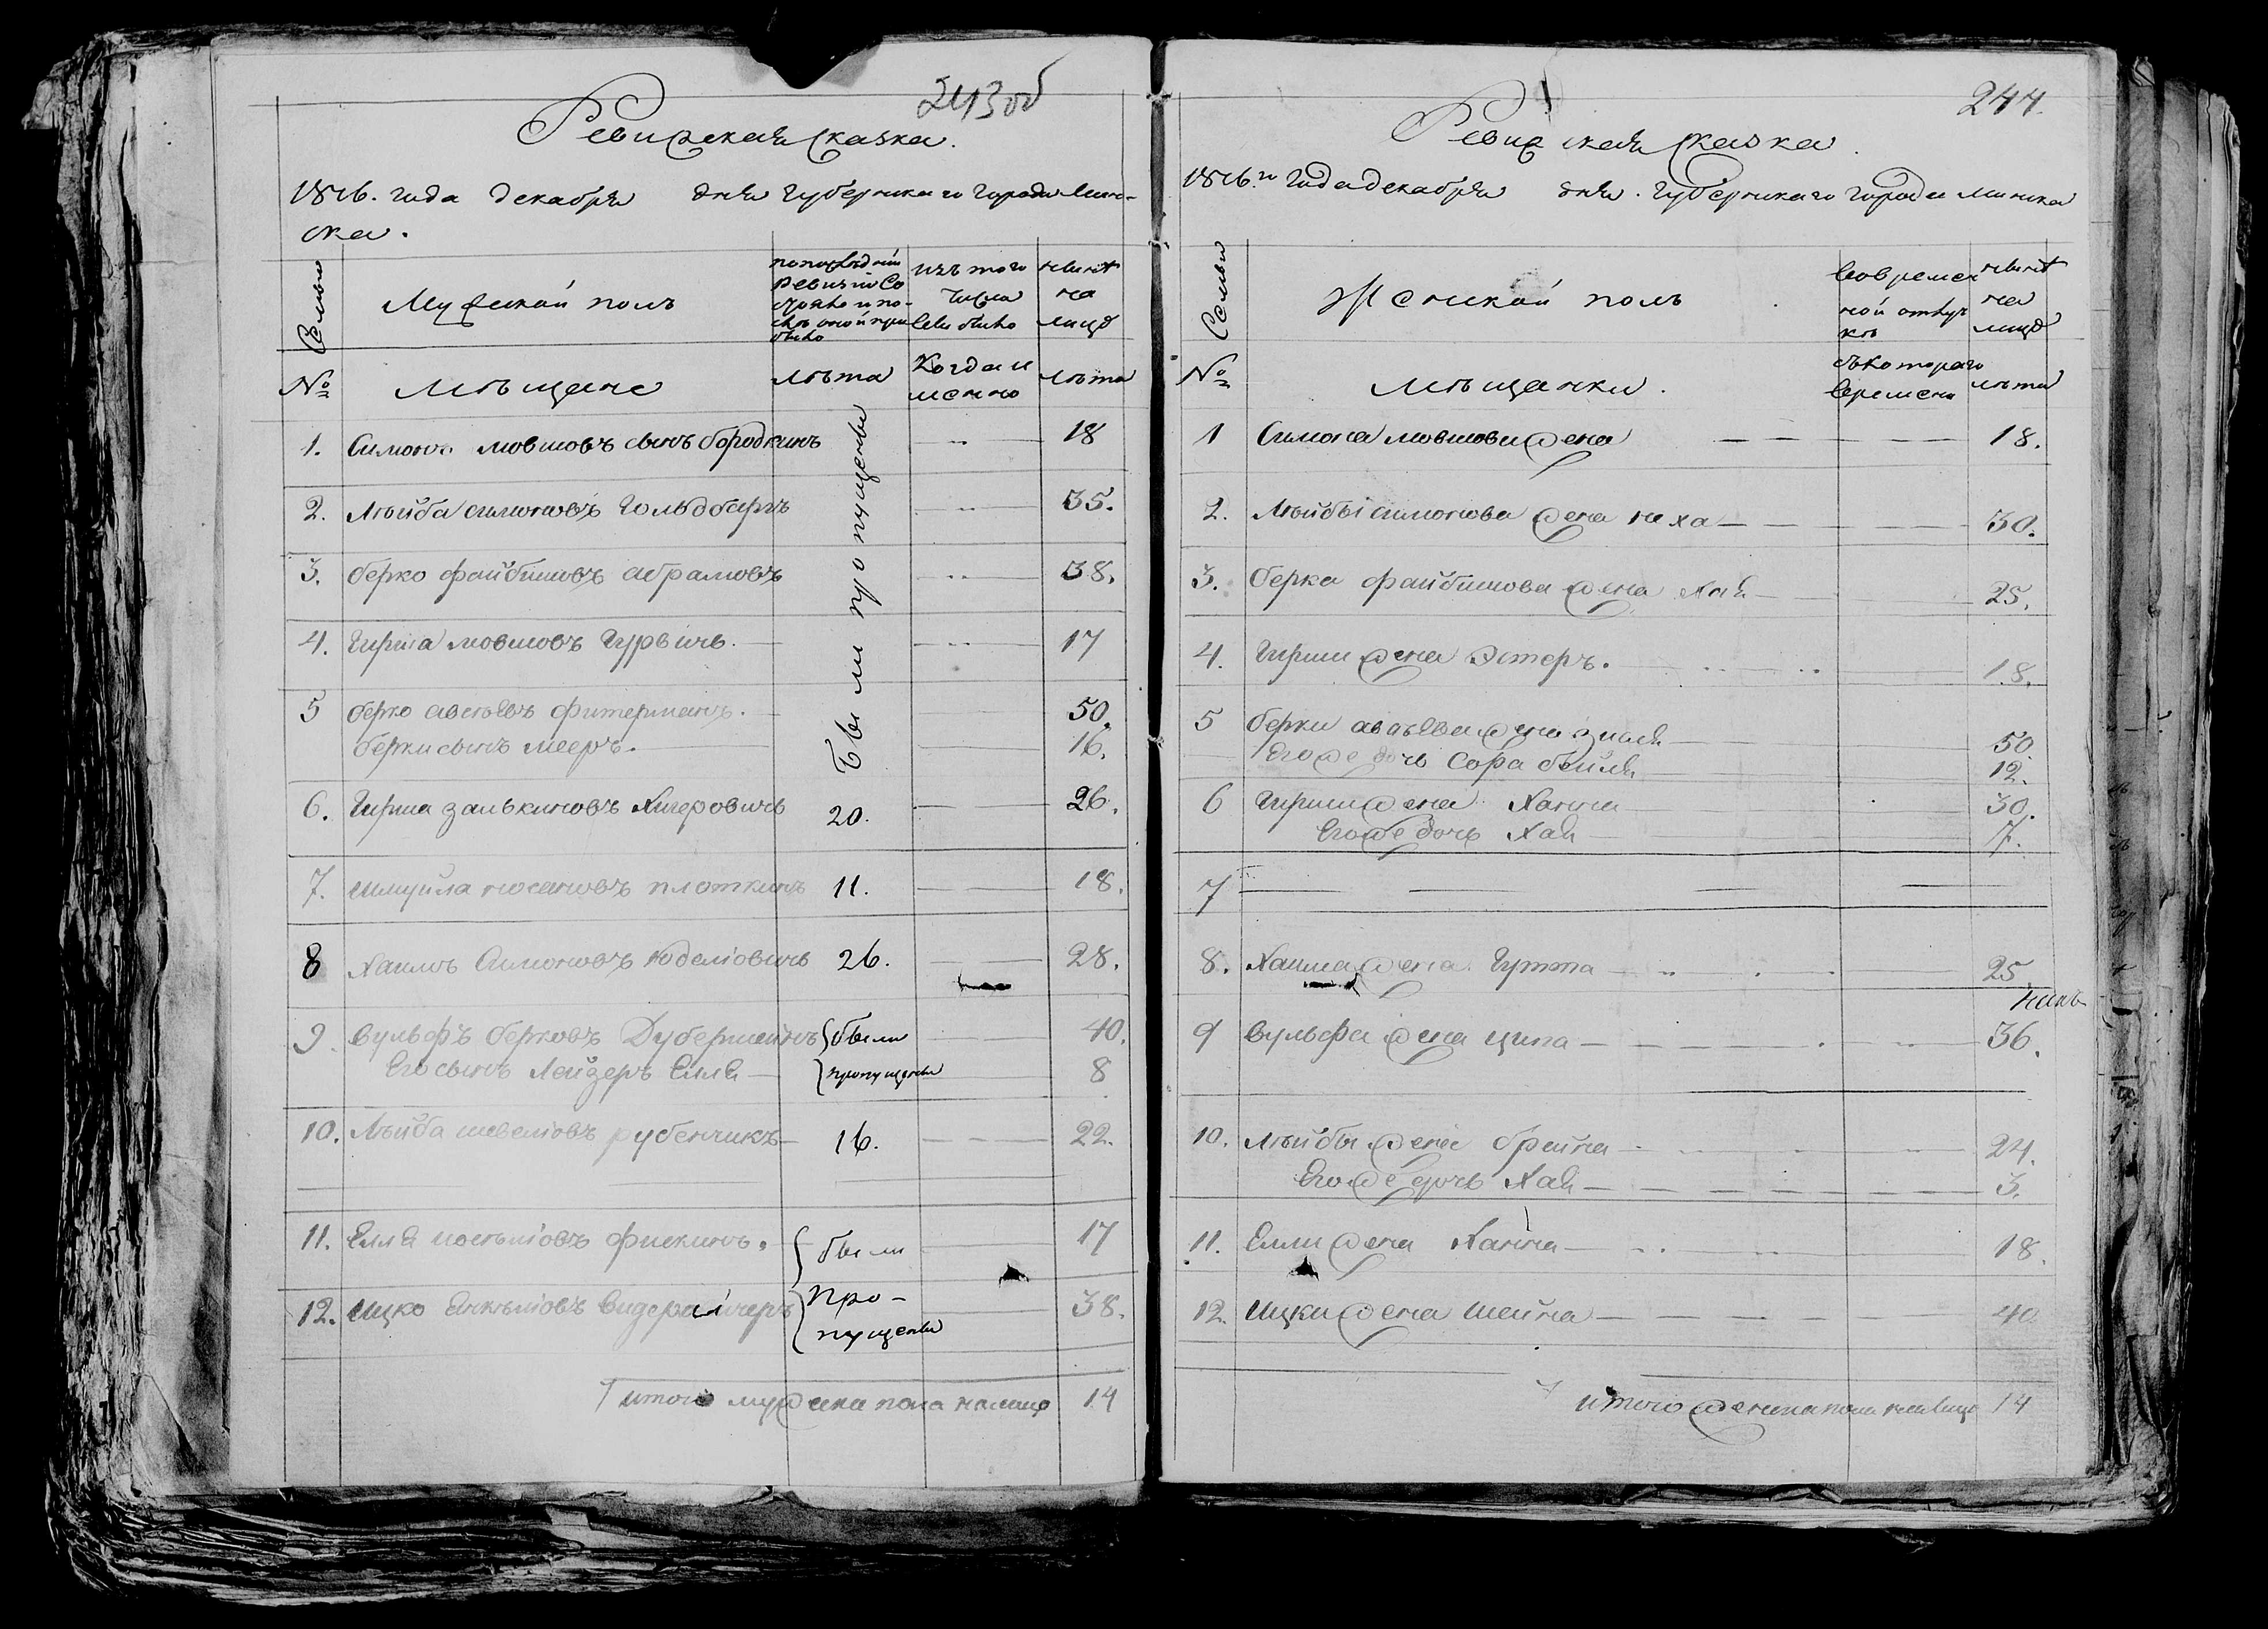 243 об
Ревизская сказка.
1816. года декабря дня Губернскаго города Мин-
ска.
Семьи
Мужеской полъ
по последней
ревизии со
стояло и по-
сле оной при
было
изъ того
числа
выбыло
ныне
на
лицо
№
Мещане
лета
Когда и
менно
лета
Были пропущены
1. Симонъ Мовшовъ сынъ Бородкинъ 18
2. Лейба Симоновъ Гольдбергъ 35.
3. Берко Файбишовъ Абрамовъ 38.
4. Гирша Мовшовъ Гурвичъ. 17
5 Берко Фитерманъ. 50.
Берки сынъ Мееръ. 16.
6. Гирша Залькиновъ Хигеровичъ 20. 26.
7. Шмуйла Носановъ Плоткинъ 11. 18.
8 Хаимъ Симоновъ Юделіовичъ 26. 28.
9. Вульфъ Берковъ Дуберманъ были 40.
Его сынъ Лейзеръ Елля пропущены 8
10. Лейба Шевеліовъ Рубенчикъ 16. 22.
11. Елля Фискинъ. были 17
12. Ицко Янкеліовъ про- 38.
пущены
итого мужска пола налицо 14
244.
Ревизская сказка.
1816.го года декабря дня. Губернскаго города Минска
Семьи
Женской полъ
Во времен
ной отлуч
ке
ныне
на
лицо
№
Мещанки.
съ котораго
времени
лета
1 Симона Мовшова жена 18.
2. Лейбы Симонова жена Неха 30.
3. Берка Файбишова жена Хая 25.
4. Гирши жена Эстеръ. 18.
5 Берки жена 50
Его же дочь Сора Бейля 12.
6 Гирши жена Ханна 30.
Его же дочь Хая 7.
7
8. Хаима жена Гутта 25
9 Вульфа жена Ципа 36.
10. Лейбы жена Брейна 24.
Его же дочь Хая 3.
11. Елли жена Ханна 18.
12. Ицки жена Шейна 40
итого женска пола налицо 14